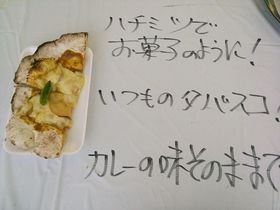 ハチミツで
お菓子のように!
いつものタバスコ!
カレーの味そのままで